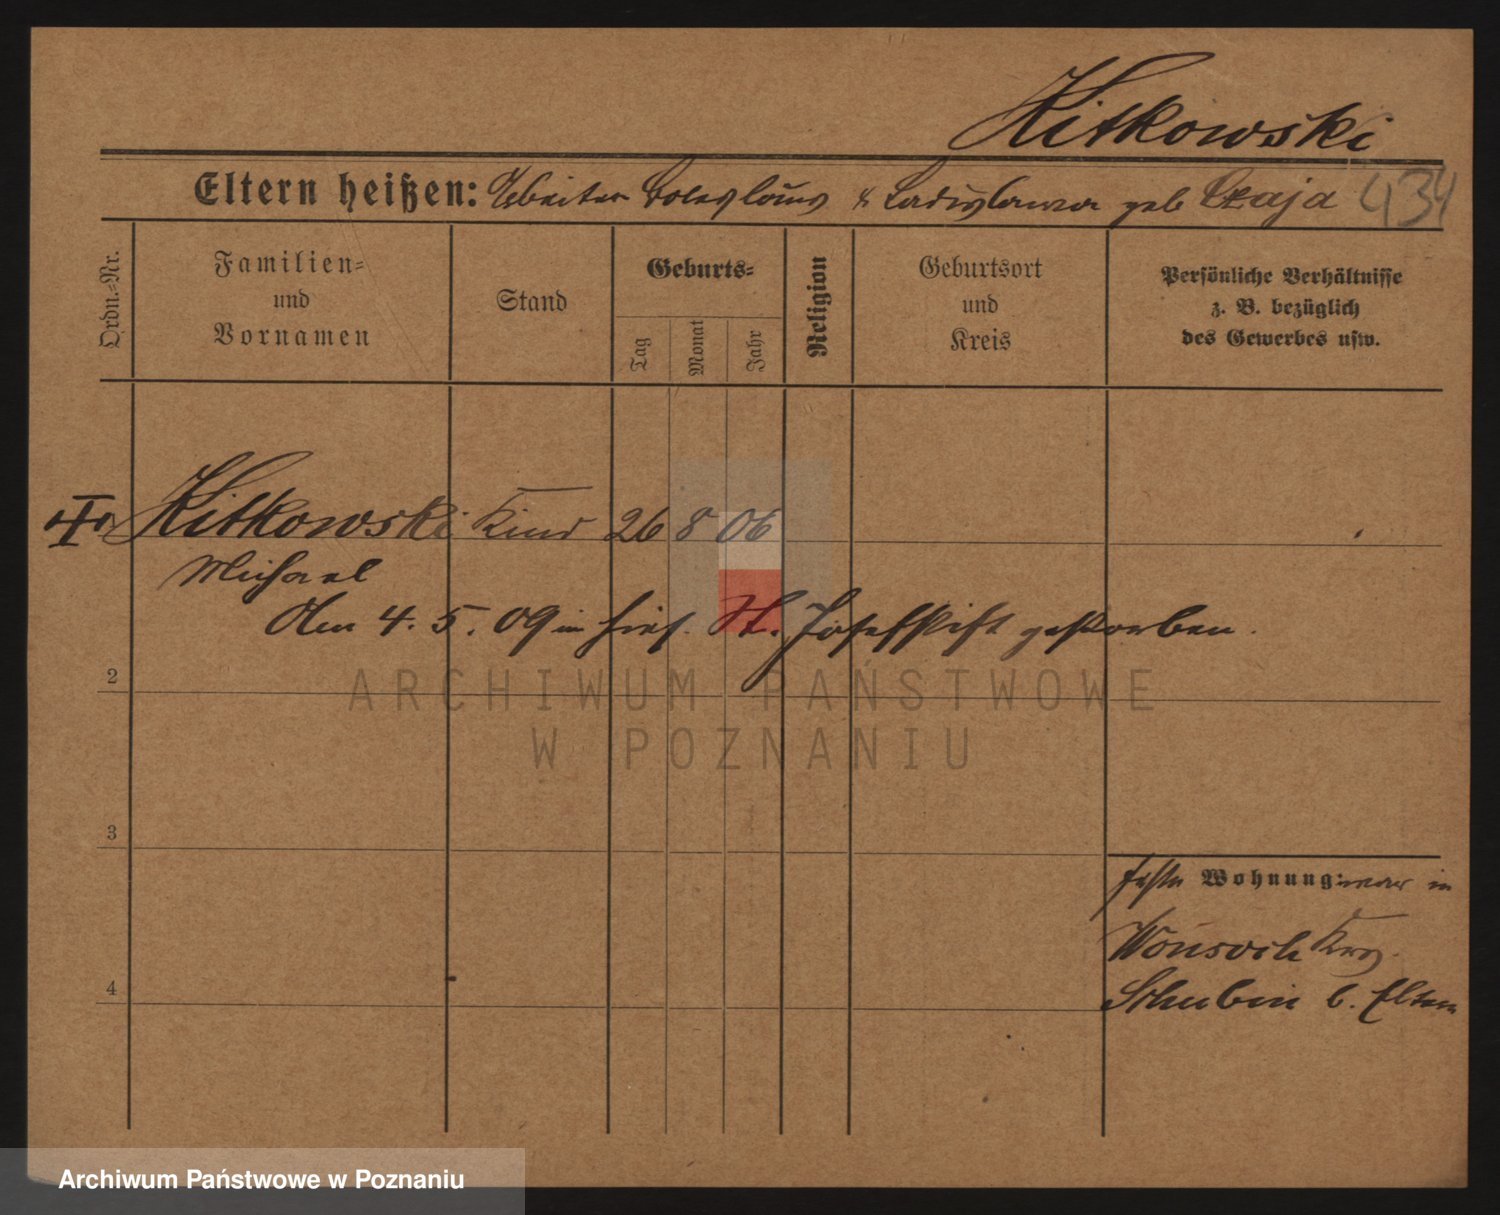 Kitkowski
Eltern heißen: Arbeiter Boleslaus & Ladislawa geb Czaja 434
Ordn.=Nr.
Familien=
und
Vornamen
Stand
Geburts=
Tag
Monat
Jahr
Religion
Geburtsort
und
Kreis
Persönliche Verhältnisse
z. B. bezüglich
des Gewerbes usw.
Kitkowski Kind 26 8 06
Michael
Am 4. 5. 09 im hies. St. Josefstift gestorben.
2
3
4
feste Wohnung: war in
Krs.
Schubin b. Eltern
ARCHIWUM PAŃSTWOWE
W POZNANIU
Archiwum Państwowe w Poznaniu